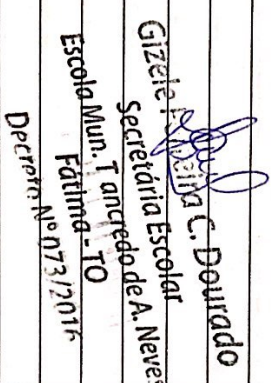 Gizele C. Dourado
Secretária Escolar
Escola Mun. Tancredo de A. Neves
Fátima - TO
Decreto Nº 073/2016